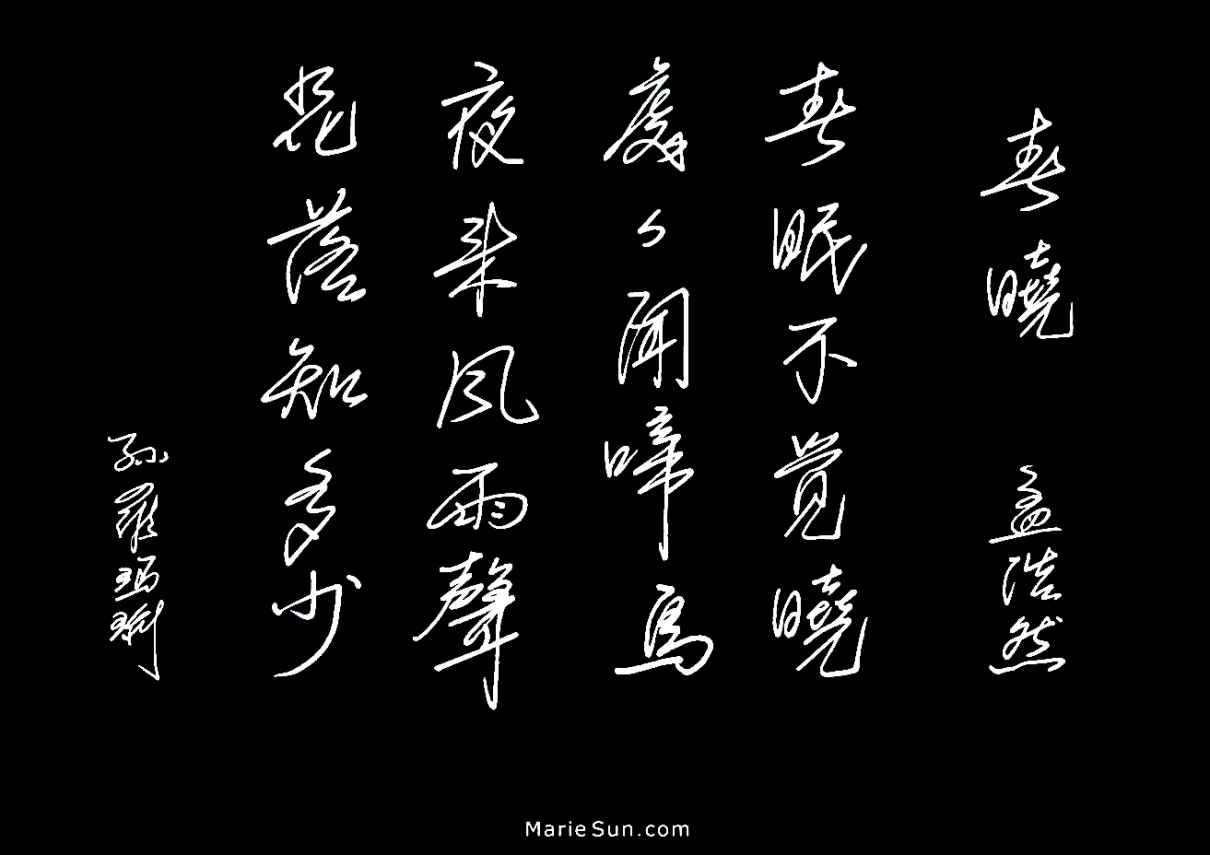 春曉 孟浩然
春眠不覺曉
處々聞啼鳥
夜来風雨聲
花落知多少
孫羅瑪琍
MarieSun.com